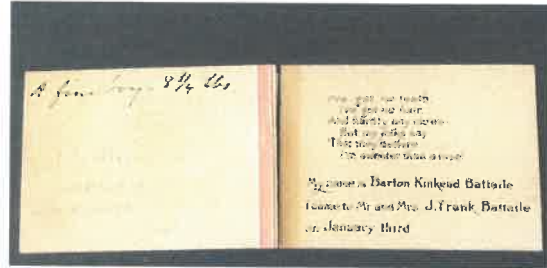 A fine boy - 8 3/4 lbs
I've got no teeth
I've got no hair
And hardly any clothes
But my folks say
That they believe
I'm sweeter than a rose!
My name is Barton Kinkead Battaile
I came to Mr and Mrs. J. Frank Battaile
on January third